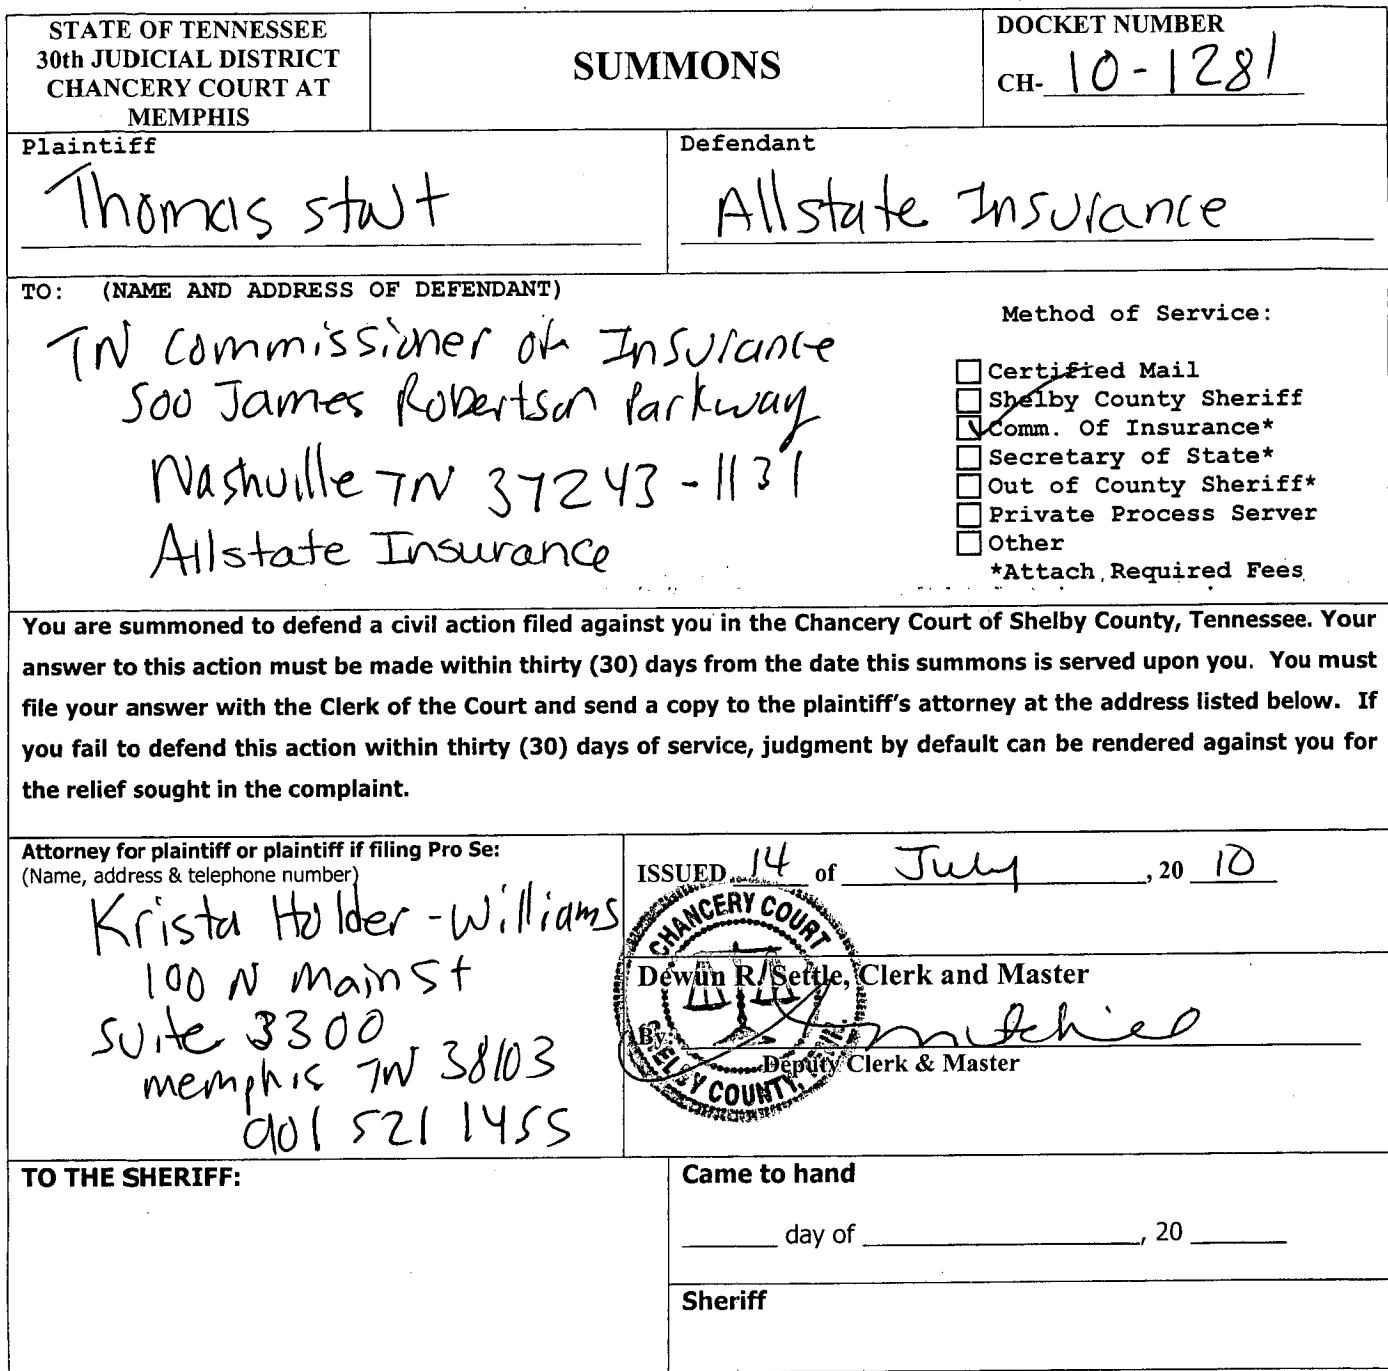 STATE OF TENNESSEE
30th JUDICIAL DISTRICT
CHANCERY COURT AT
MEMPHIS
SUMMONS
DOCKET NUMBER
CH- 10-1281
Plaintiff
Thomas
Defendant
Allstate Insurance
TO: (NAME AND ADDRESS OF DEFENDANT)
TN Commissioner of Insurance
500 James Robertson Parkway
Nashville TN 37243-1131
Allstate Insurance
Method of Service:
Certified Mail
Shelby County Sheriff
Comm. Of Insurance*
Secretary of State*
Out of County Sheriff*
Private Process Server
Other
*Attach Required Fees
You are summoned to defend a civil action filed against you in the Chancery Court of Shelby County, Tennessee. Your
answer to this action must be made within thirty (30) days from the date this summons is served upon you. You must
file your answer with the Clerk of the Court and send a copy to the plaintiff's attorney at the address listed below. If
you fail to defend this action within thirty (30) days of service, judgment by default can be rendered against you for
the relief sought in the complaint.
Attorney for plaintiff or plaintiff if filing Pro Se:
(Name, address & telephone number)
Krista Holder-Williams
100 N Main St
Suite 3300
memphis TN 38103
901 521 1455
ISSUED 14 of July, 20 10
CHANCERY COURT
Dewun R. Settle, Clerk and Master
By:
Deputy Clerk & Master
SHELBY COUNTY, TENN.
TO THE SHERIFF:
Came to hand
day of , 20
Sheriff